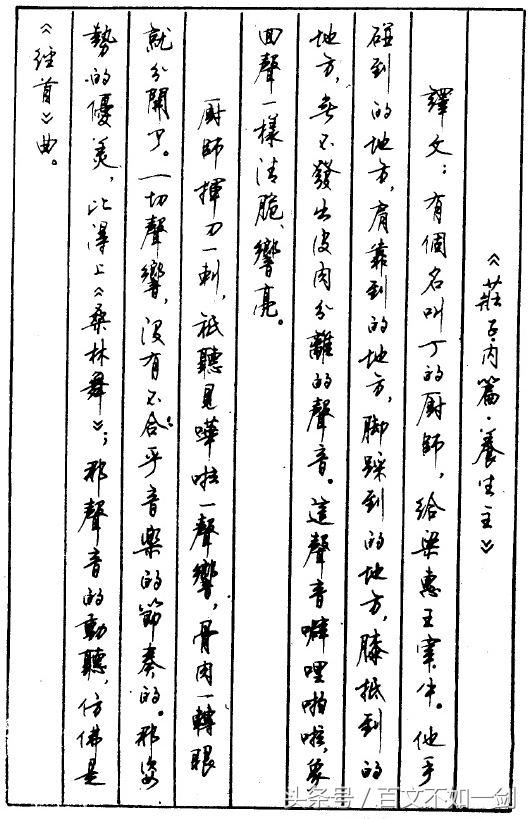 《莊子·內篇·養生主》
譯文：有個名叫丁的廚師，給梁惠王宰牛。他手
碰到的地方，肩靠到的地方，脚踩到的地方，膝抵到的
地方，無不發出皮肉分離的聲音。這聲音噼哩啪啦，象
回聲一樣清脆、響亮。
廚師揮刀一刺，祗聽見嘩啦一聲響，骨肉一轉眼
就分開了。一切聲響，没有不合乎音樂的節奏的。那姿
勢的優美，比得上《桑林舞》；那聲音的動聽，仿佛是
《經首》曲。
头条号／百文不如一剑